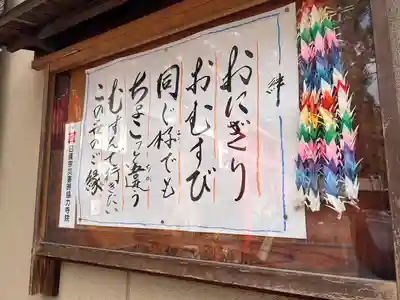 絆
おにぎり
おむすび
同じ様でも
ちょこっと違う
むすんで行きたい
この世のご縁
日蓮宗災害救援協力寺院